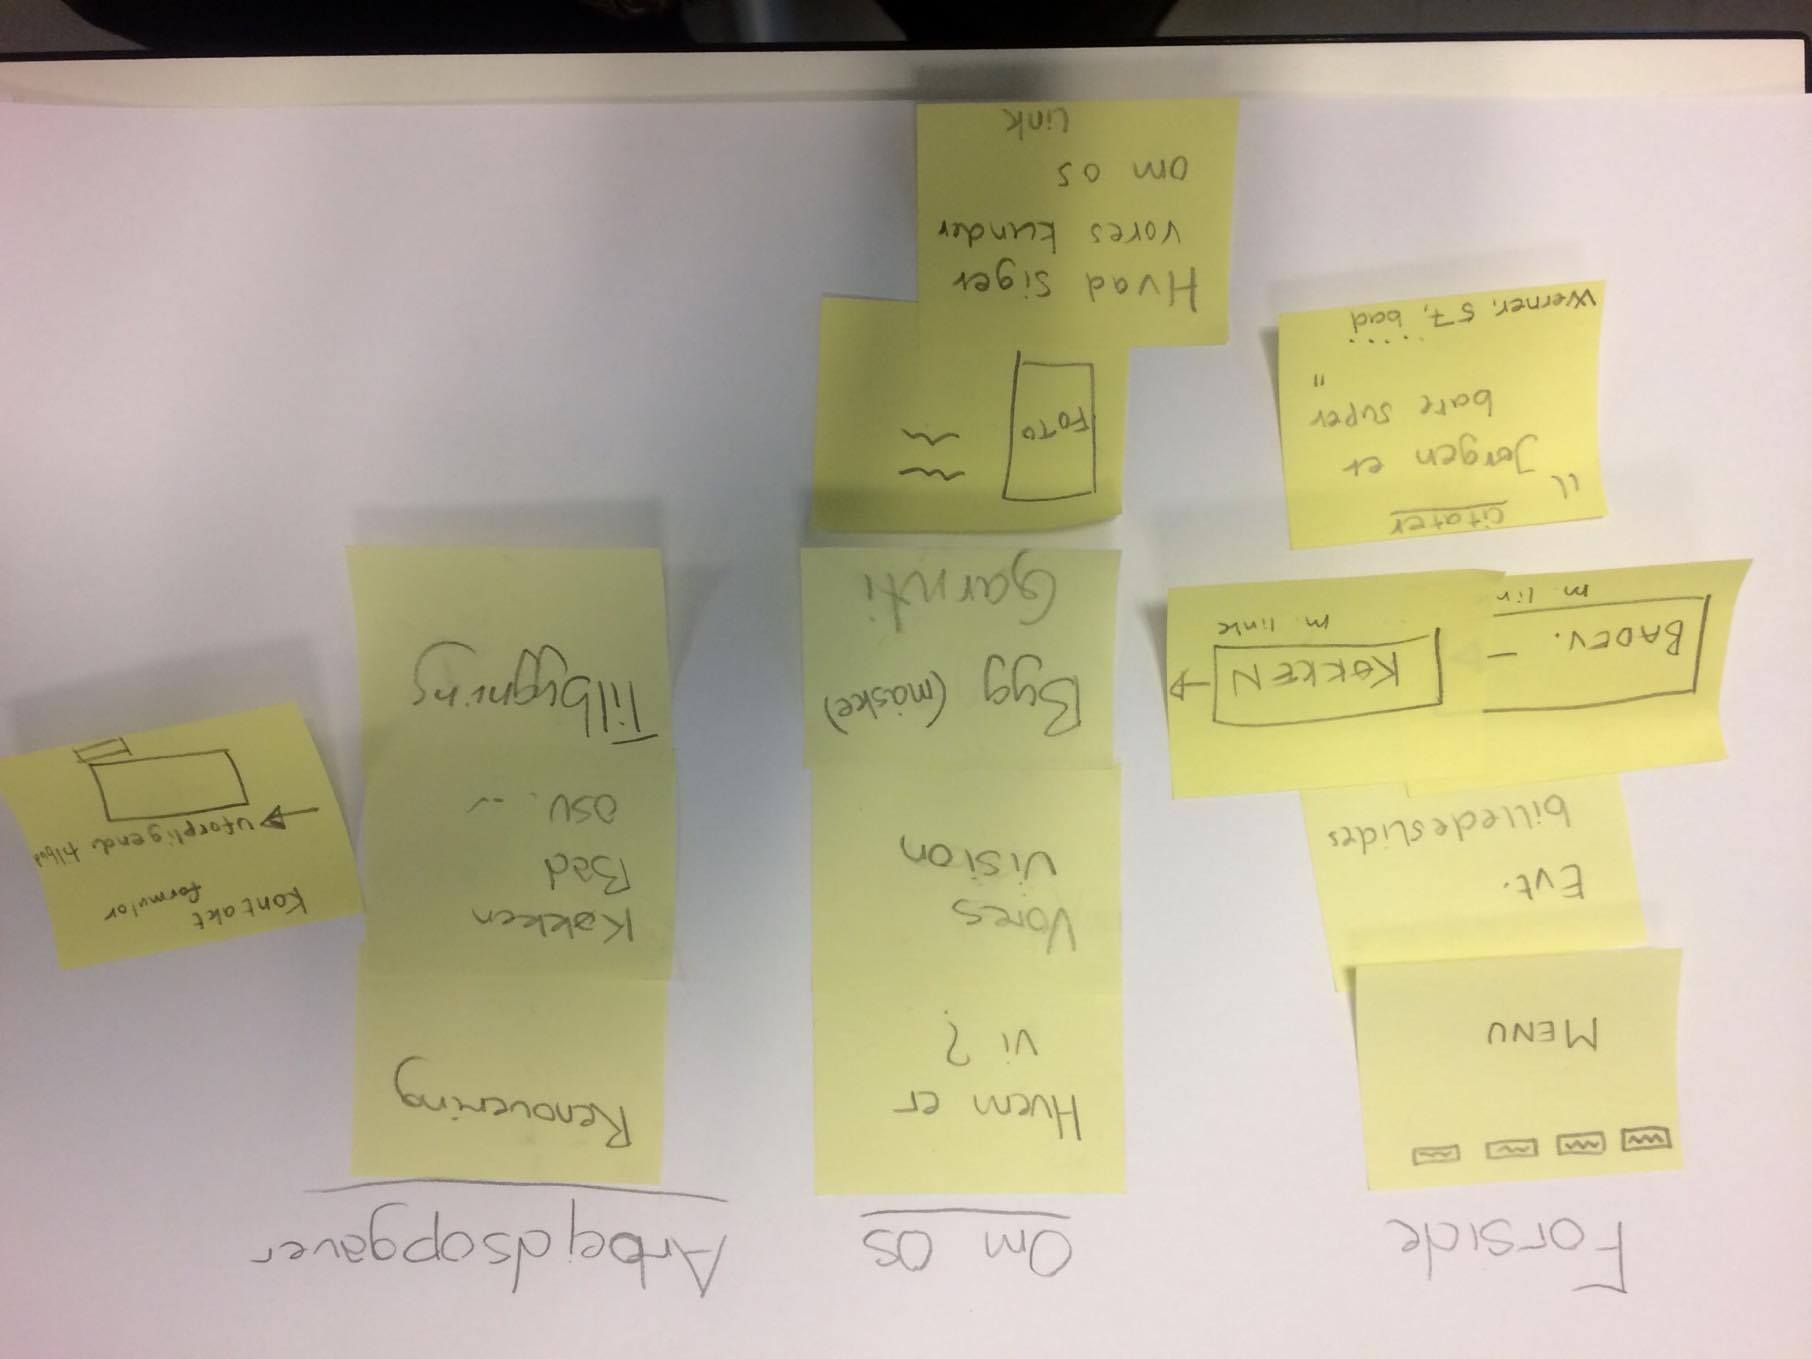 Forside
MENU
Evt.
billedeslides
BADEV.
m. lin
KØKKEN
m. link
citater
"
Jørgen er
bare super
"
.....
Werner, 57, bad
Om os
Hvem er
vi ?
Vores
vision
Byg (måske)
Garnti
FOTO
Hvad siger
vores kunder
om os
Link
Arbejdsopgaver
Renovering
Køkken
Bad
osv. --
Tilbygning
Kontakt
formular
uforpligende tilbud